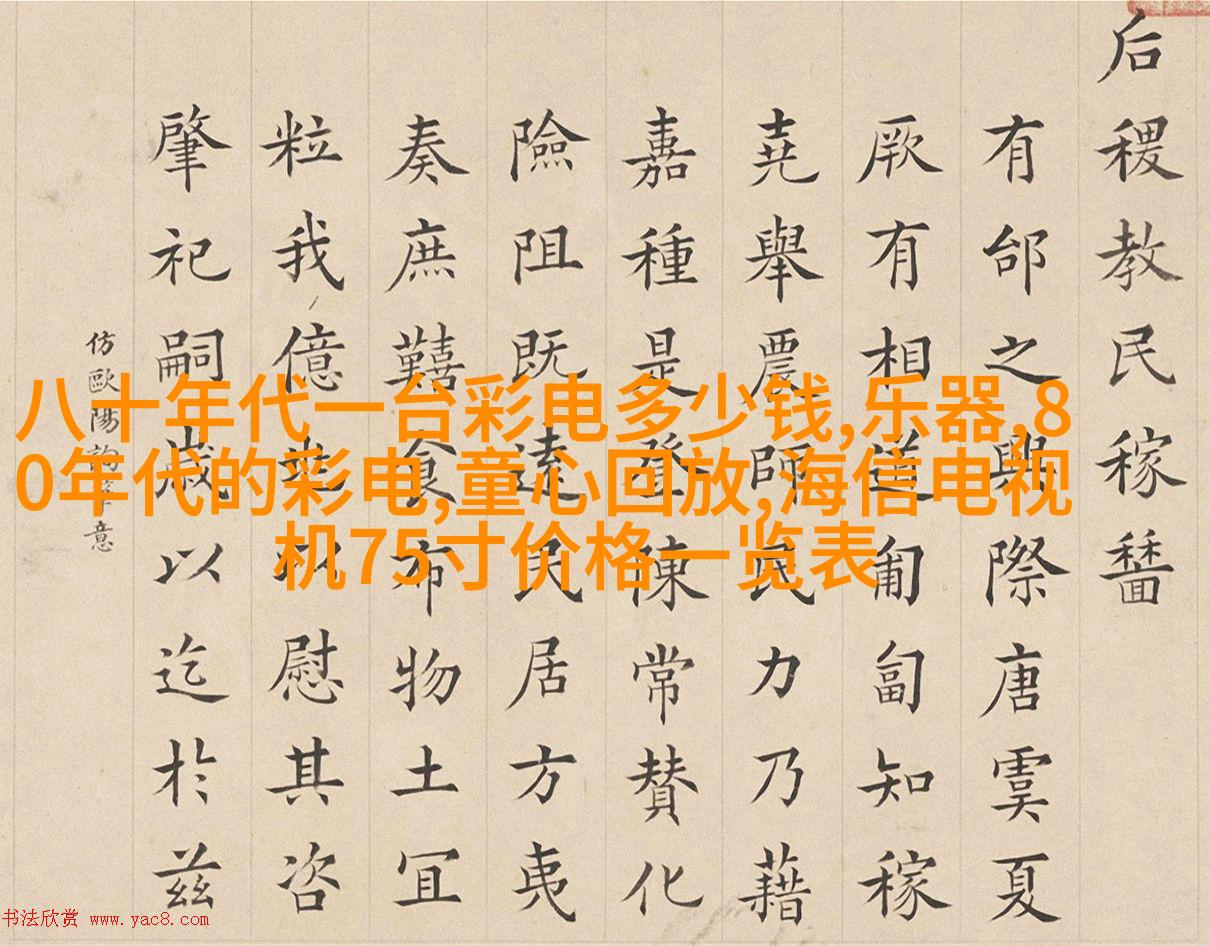 后稷教民稼穡
有邰之興際唐虞夏
厥有相道匍匐知稼
堯舉農師民力乃藉
嘉種是登陳常贊化
險阻既遠民居方夷
奏庶囏食布物土宜
粒我億以慰其咨
肇祀嗣歲以迄於茲
仿歐陽詢筆意
八十年代一台彩电多少钱,乐器,8
0年代的彩电,童心回放,海信电视
机75寸价格一览表
书法欣赏 www.yac8.com